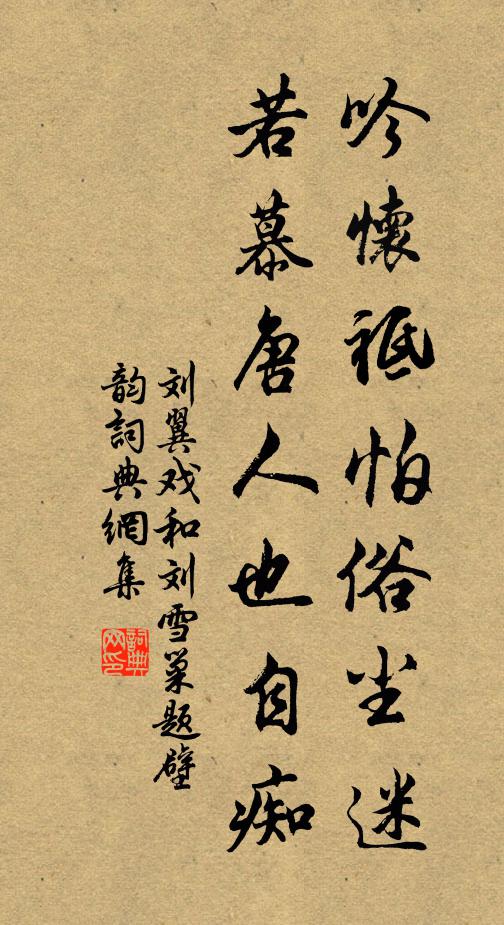 吟懷祗怕俗尘迷
若慕唐人也自痴
刘翼戏和刘雪巢题壁
韵詞典網集
詞典网印